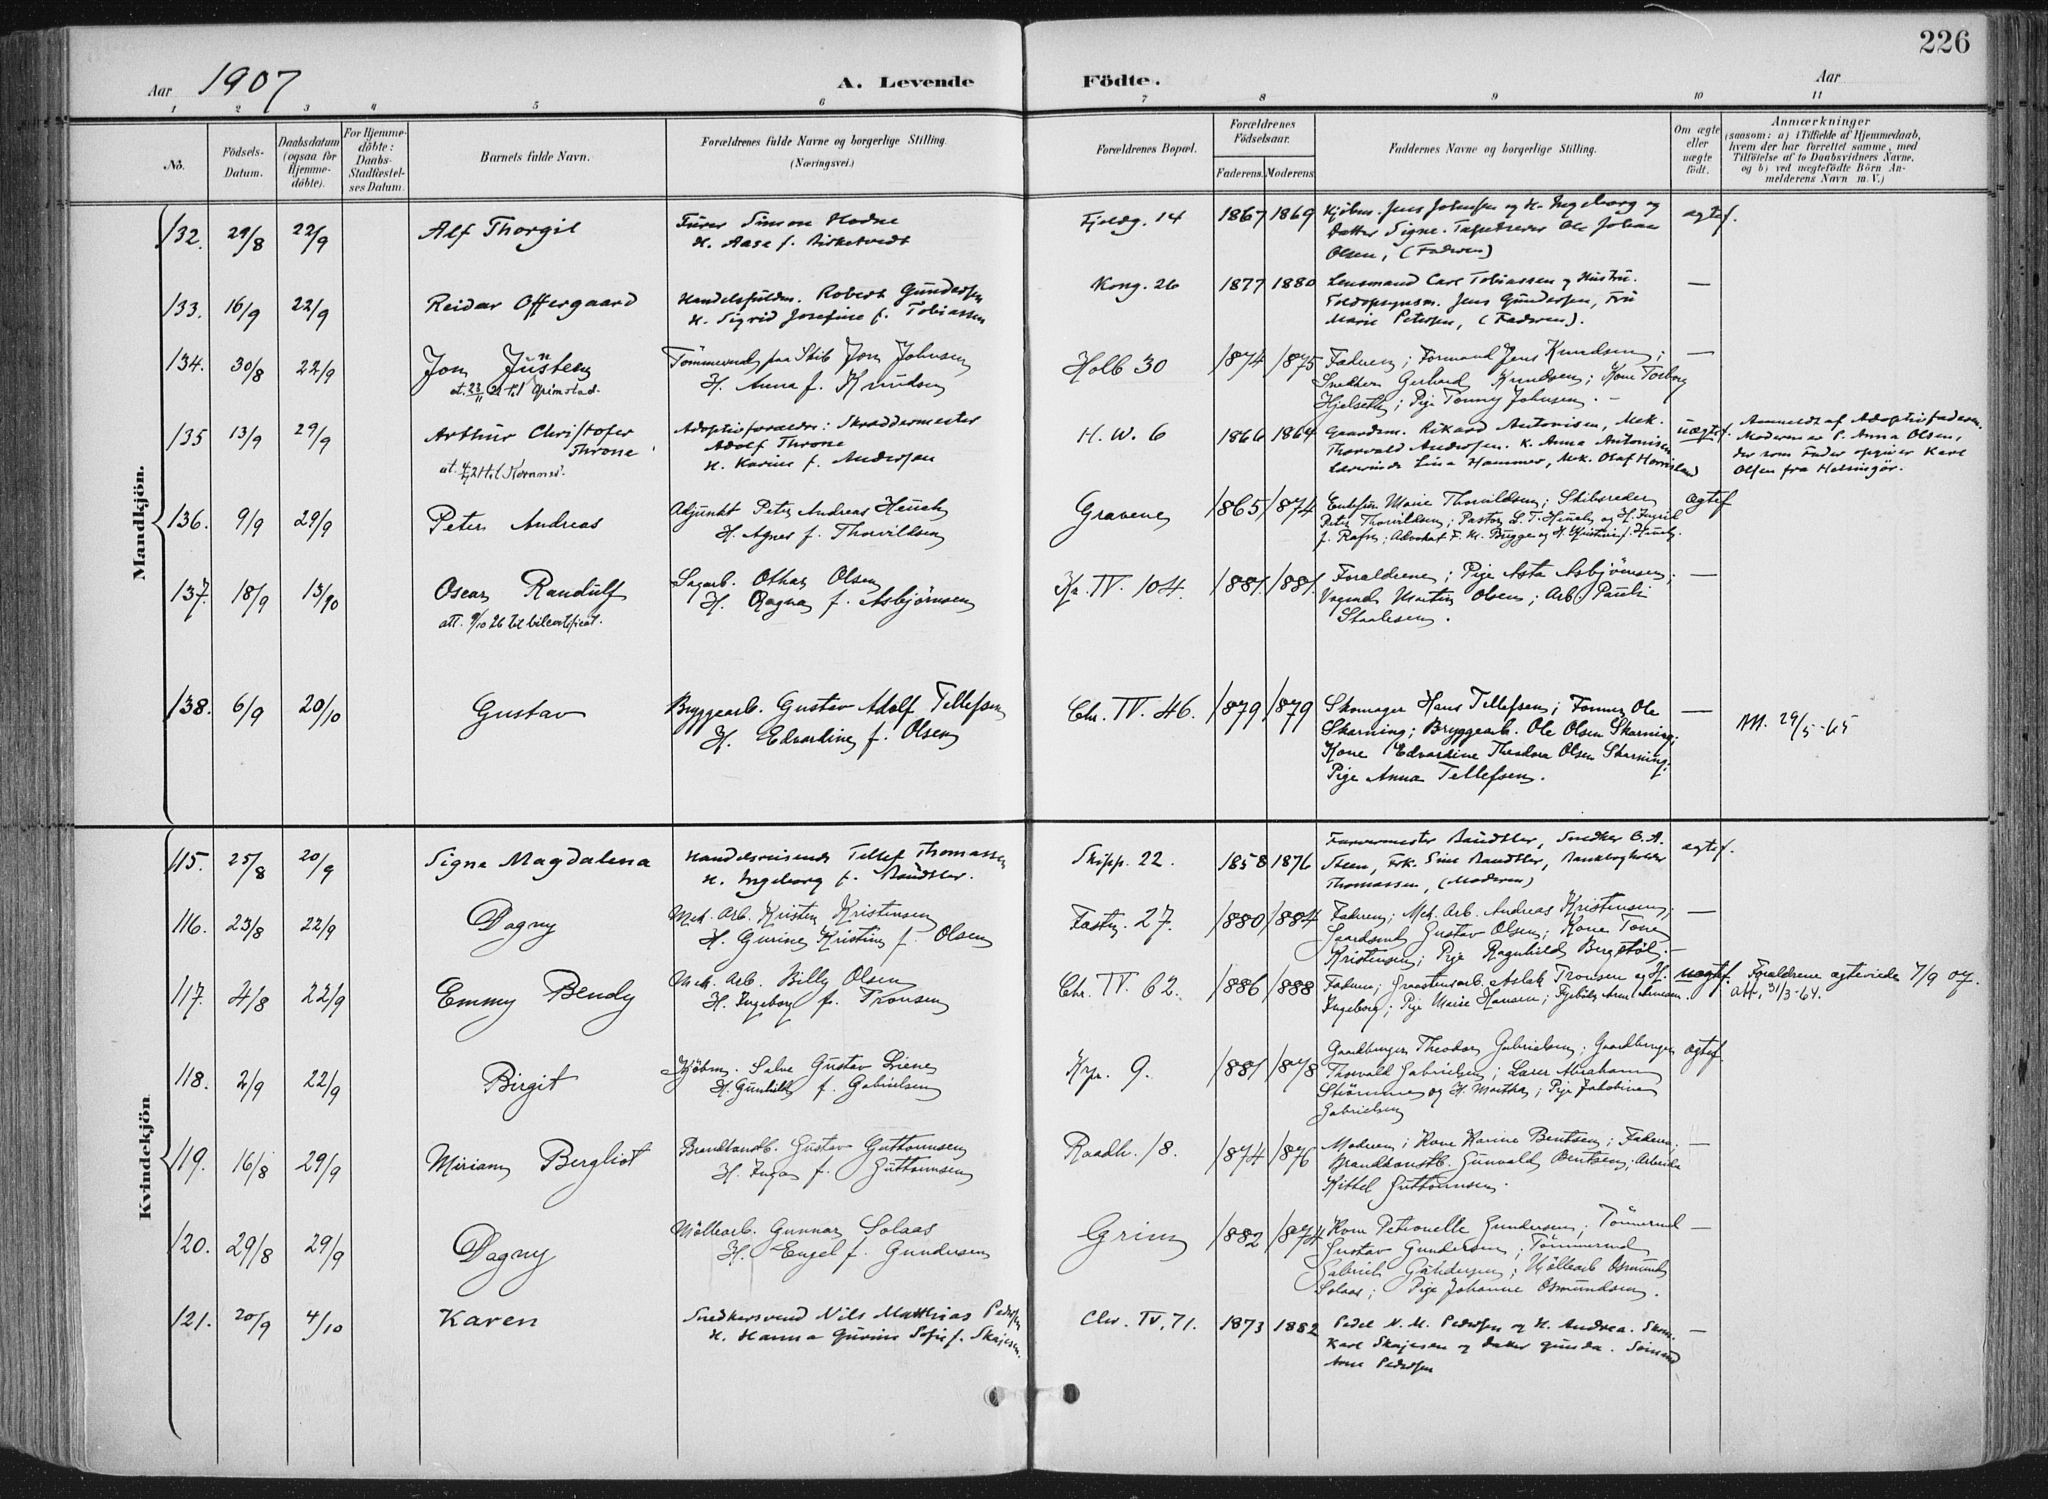 226
Aar 1907
A. Levende
Födte.
Aar
1 2 3 4 5 6 7 8 9 10 11
No.
Födsels-
Datum.
Daabsdatum
(ogsaa for
Hjemme-
döbte).
For Hjemme-
döbte:
Daabs-
Stadfæstel-
ses Datum.
Barnets fulde Navn.
Forældrenes fulde Navne og borgerlige Stilling
(Næringsvei.)
Forældrenes Bopæl.
Forældrenes
Födselsaar.
Faderens. Moderens
Faddernes Navne og borgerlige Stilling.
Om ægte
eller
uægte
födt.
Anmærkninger
(saasom: a) i Tilfælde af Hjemmedaab,
hvem der har forrettet samme, med
Tilföielse af to Daabsvidners Navne,
og b) ved uægtefödte Börn An-
melderens Navn m. V.)
Mandkjön.
132. 29/8 22/9 Alf Thorgil
Simon Hodne
H. Aase f. Birketvedt
Fjeldg. 14 1867 1869
Kjöbm. Jens Johnsen og H. Ingeborg og
Datter Signe. Ole Johan
Olsen, (Faderen)
ægtef.
133. 16/9 22/9 Reidar Offergaard
Handelsfuldm. Robert Gundersen
H. Sigrid Josefine f. Tobiassen
Kong. 26 1877 1880
Lensmand Carl Tobiassen og Hustru.
Toldopsynsm. Jens Gundersen, Fru
Marie Petersen, (Faderen).
—
134. 30/8 22/9 Jon Justen
at. 23/11 21 til Grimstad.
Tömmermd. paa Skib Jon Johnsen
H. Anna f. Knudsen
Holb 30 1874 1875
Faderen; Formand Jens Knudsen;
Snekker Gerhard Knudsen; Kone Torborg
Hjelseth; Pige Tonny Johnsen. —
—
135 13/9 29/9 Arthur Christofer
Throne
Adoptivforældre: Skreddermester
Adolf Throne
H. Karine f. Andersen
H. W. 6 1866 1864
Gaardm. Rikard Antonisen, Mek.
Thorvald Andersen. K. Anna Antonisen
Lærerinde Lina Hammer, Mek. Olaf
uægtef.
Anmeldt af Adoptivfaderen.
Moderen er P. Anna Olsen,
der som Fader opgiver Karl
Olsen fra Helsingör.
136. 9/9 29/9 Peter Andreas
Adjunkt Peter Andreas Heuch
H. Agnes f. Thorvildsen
Gravene 1865 1874
Enkefru Marie Thorvildsen; Skibsreder
Peter Thorvildsen; Pastor Heuch og H. Ingrid
f. Rafn; Advokat F. M. Bugge og H. Kristine f. Heuch.
ægtef
137. 18/9 13/10 Oscar Randulf
att. 9/10 26 til bilcertificat.
Sagarb. Othar Olsen
H. Ragna f. Asbjörnsen
Kr. IV. 104. 1881. 1881.
Forældrene; Pige Asta Asbjörnsen;
Martin Olsen; Arb. Pauli
Staalesen.
—
138. 6/9 20/10 Gustav
Bryggearb. Gustav Adolf Tellefsen
H. Edvardine f. Olsen
Chr. IV. 46. 1879 1879
Skomager Hans Tellefsen; Tömmerm. Ole
Skarning; Bryggearb. Ole Olsen Skarning;
Kone Edvardine Theodora Olsen Skarning;
Pige Anna Tellefsen.
—
29/5-65
Kvindekjön
115. 25/8 20/9 Signe Magdalena
Handelsreisende Tellef Thomassen
H. Ingeborg f. Baudtler.
Skipp. 22. 1858 1876
Farvermester Baudtler, Snedker
Steen, Frk. Sine Baudtler,
Thomassen, (Moderen)
ægtef.
116. 23/8 22/9 Dagny
Mek. Arb. Kristen Kristensen
H. Gurine Kristine f. Olsen
Fastn. 27. 1880 1884
Faderen; Mek. Arb. Andreas Kristensen;
Gustav Olsen; Kone Tone
Kristensen; Pige Ragnhild Bergstöl.
—
117. 4/8 22/9 Emmy Bendy
Mek. Arb. Billy Olsen
H. Ingeborg f. Tronsen
Chr. IV. 62. 1886 1888
Faderen; Aslak Tronsen og H.
Ingeborg; Pige Marie Hansen;
uægtef. Forældrene ægteviede 7/9 07.
att. 31/3-64.
118. 2/9 22/9 Birgit
Kjöbm. Salve Gustav Liene
H. Gunhild f. Gabrielsen
Krp. 9. 1881 1878
Gaardbruger Theodor Gabrielsen; Gaardbruger
Thorvald Gabrielsen; Lærer Abraham
Strömme og H. Martha; Pige Jakobine
Gabrielsen
ægtef
119. 16/8 29/9 Miriam Bergliot
Brandkonstb. Gustav Guttormsen
H. Inga f. Guttormsen
Raadh. 18. 1874 1876
Moderen; Kone Karine Bentsen; Faderen.
Brandkonstb. Gunvald Bentsen. Arbeider
Kittel Guttormsen.
—
120. 29/8 29/9 Dagny
Möllearb. Gunnar Solaas
H. Engel f. Gundersen
Grim 1882 1874
Kone Petronelle Gundersen; Tömmermd.
Gustav Gundersen; Tömmermd.
Gabriel Gundersen; Möllearb Osmund
Solaas; Pige Johanne Osmundsen.
—
121. 20/9 4/10 Karen
Snedkersvend Nils Matthias Pedersen
H. Hanna Gurine Sofie f. Skajesen.
Chr. IV, 71. 1873 1882
Pedel N. M. Pedersen og H. Andrea. Skom.
Karl Skajesen og datter Gunda. Sömand
Arne Pedersen
—